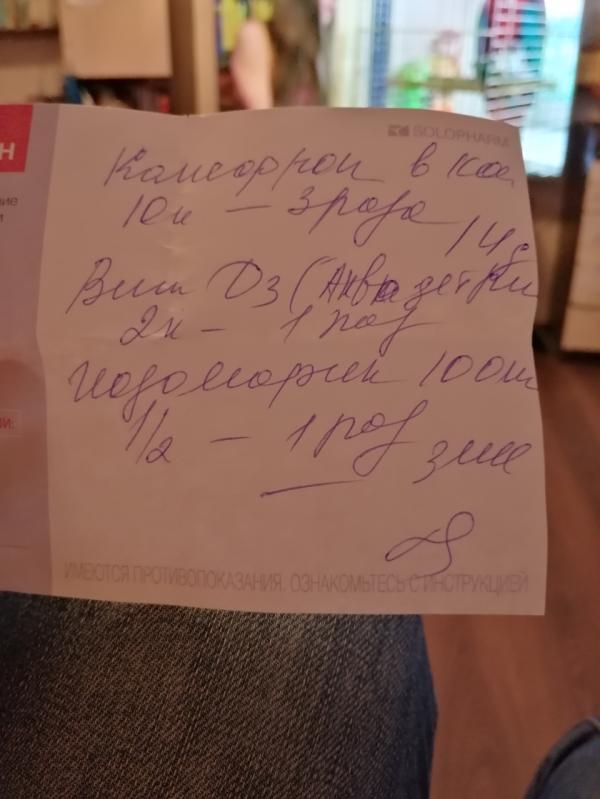 SOLOPHARM
Н
ние
и
Канефрон в кап
10к — 3 раза
14 д
Вит Д3 (Аквадетрим
2к — 1 раз
Иодомарин 100
1/2 — 1 раз
3 мес
ИМЕЮТСЯ ПРОТИВОПОКАЗАНИЯ. ОЗНАКОМЬТЕСЬ С ИНСТРУКЦИЕЙ